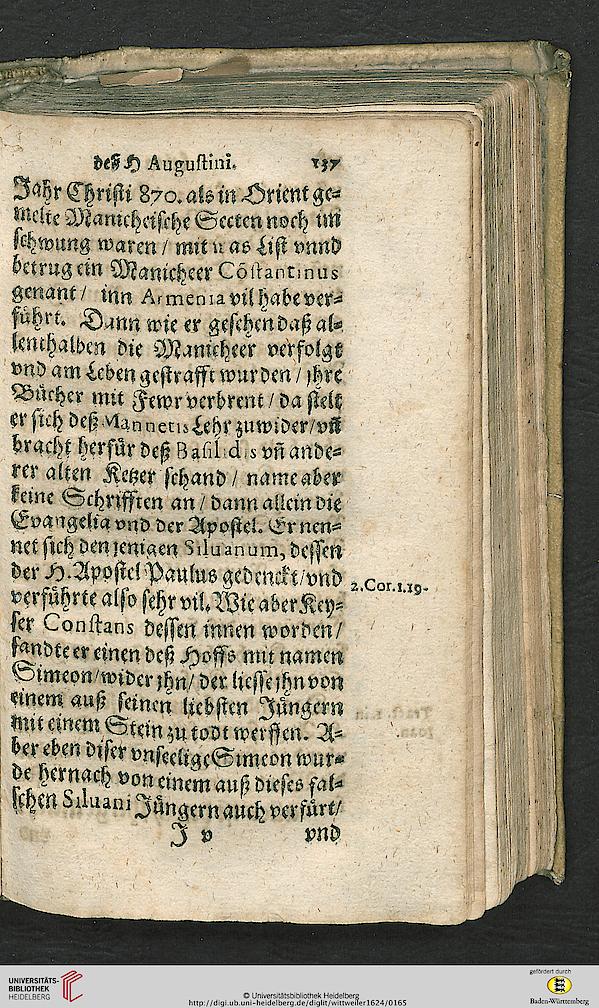 deß H Augustini. 137
Jahr Christi 870. als in Orient ge=
melte Manicheische Secten noch im
schwung waren / mit was List vnnd
betrug ein Manicheer Cõstantinus
genant / inn Armenia vil habe ver=
führt. Dann wie er gesehen daß al=
lenthalben die Manicheer verfolgt
vnd am Leben gestrafft wurden / jhre
Bücher mit Fewr verbrent / da stelt
er sich deß Mannetis Lehr zuwider / vñ
bracht herfür deß Basilidis vñ ande=
rer alten Ketzer schand / name aber
keine Schrifften an / dann allein die
Evangelia vnd der Apostel. Er nen=
net sich den jenigen Siluanum, dessen
der H. Apostel Paulus gedenckt / vnd
2. Cor. 1. 19.
verführte also sehr vil. Wie aber Key=
ser Constans dessen innen worden /
sandte er einen deß Hoffs mit namen
Simeon / wider jhn / der liesse jhn von
einem auß seinen liebsten Jüngern
mit einem Stein zu todt werffen. A=
ber eben diser vnseelige Simeon wur=
de hernach von einem auß dieses fal=
schen Siluani Jüngern auch verfürt /
J v vnd
UNIVERSITÄTS-
BIBLIOTHEK
HEIDELBERG
© Universitätsbibliothek Heidelberg
http://digi.ub.uni-heidelberg.de/diglit/wittweiler1624/0165
gefördert durch
Baden-Württemberg